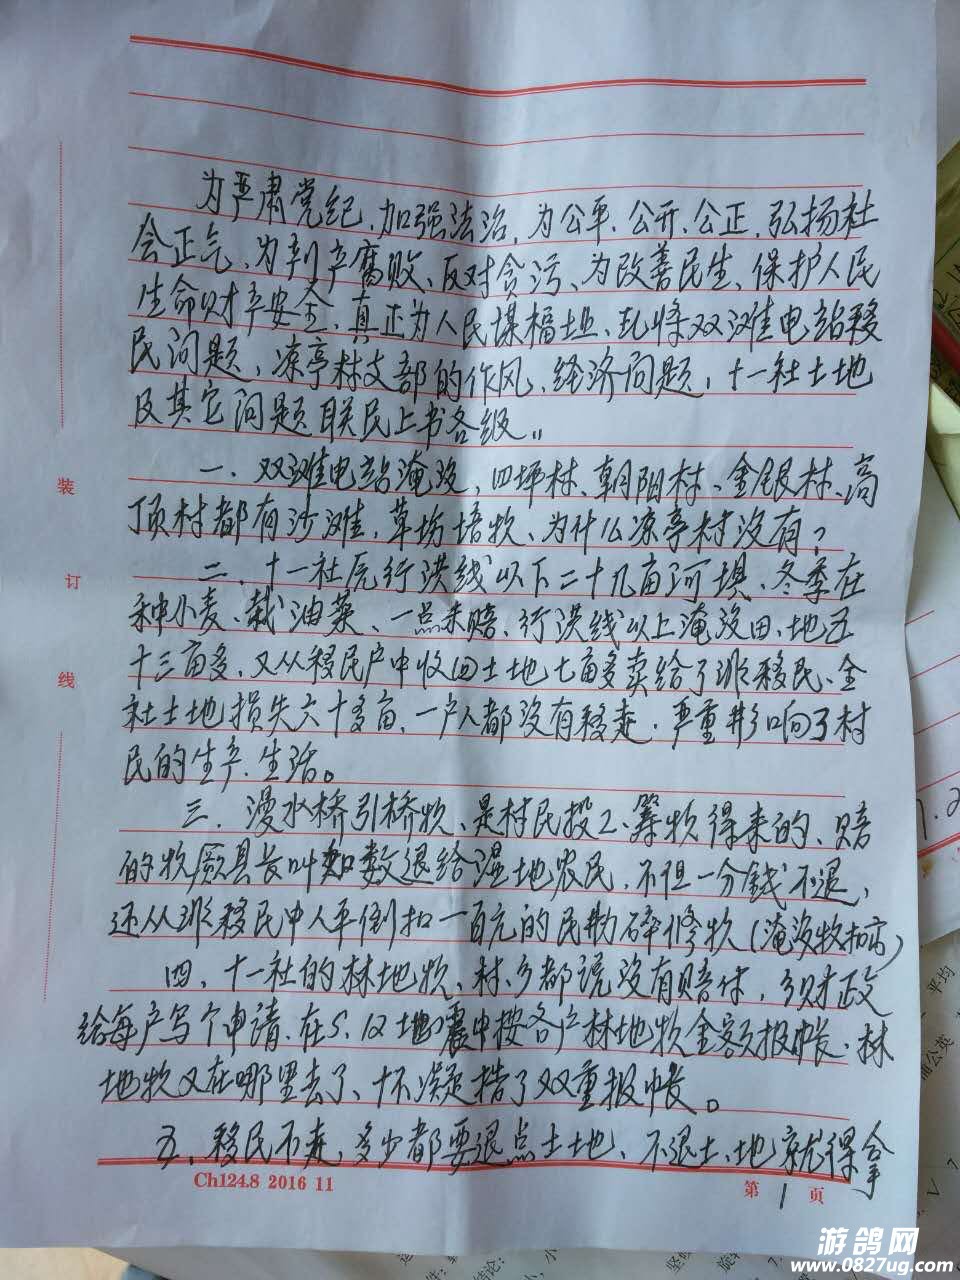 为严肃党纪,加强法治,为公平、公开、公正,弘扬社
会正气、为利产腐败、反对贪污、为改善民生、保护人民
生命财产安全、真正为人民谋福业、扎将双滩电站移
民问题,凉亭村支部的作风、经济问题,十一社土地
及其它问题联民上书各级。
一、双滩电站淹没,四坪村、朝阳村、金银村、高
顶村都有沙滩,草坊培牧、为什么凉亭村没有?
二、十一社尻行洪线以下二十几亩河坝、冬季在
种小麦、栽油菜、一点未赔、行洪线以上淹没田、地五
十三亩多,又从移民户中收回土地七亩多卖给了非移民、全
社土地损失六十多亩、一户人都没有移走.严重影响了村
民的生产.生活。
三、漫水桥引桥牧、是村民投工、筹牧得来的、赔
的牧原县长叫如数退给湿地农民,不但一分钱不退,
还从非移民中人平倒扣一百元的民勤碎修牧(淹没牧扣)
四、十一社的林地牧、村、乡都说没有赔付,乡财政
给每户写个申请、在5.12地震中按各户林地牧金额报帐.林
地牧又在哪里去了、怀凝搞了双重报帐。
五、移民不走,多少都要退点土地、不退土、地就得拿
装
订
线
Ch124.8 2016 11
第 1 页
游鸽网
www.0827ug.com